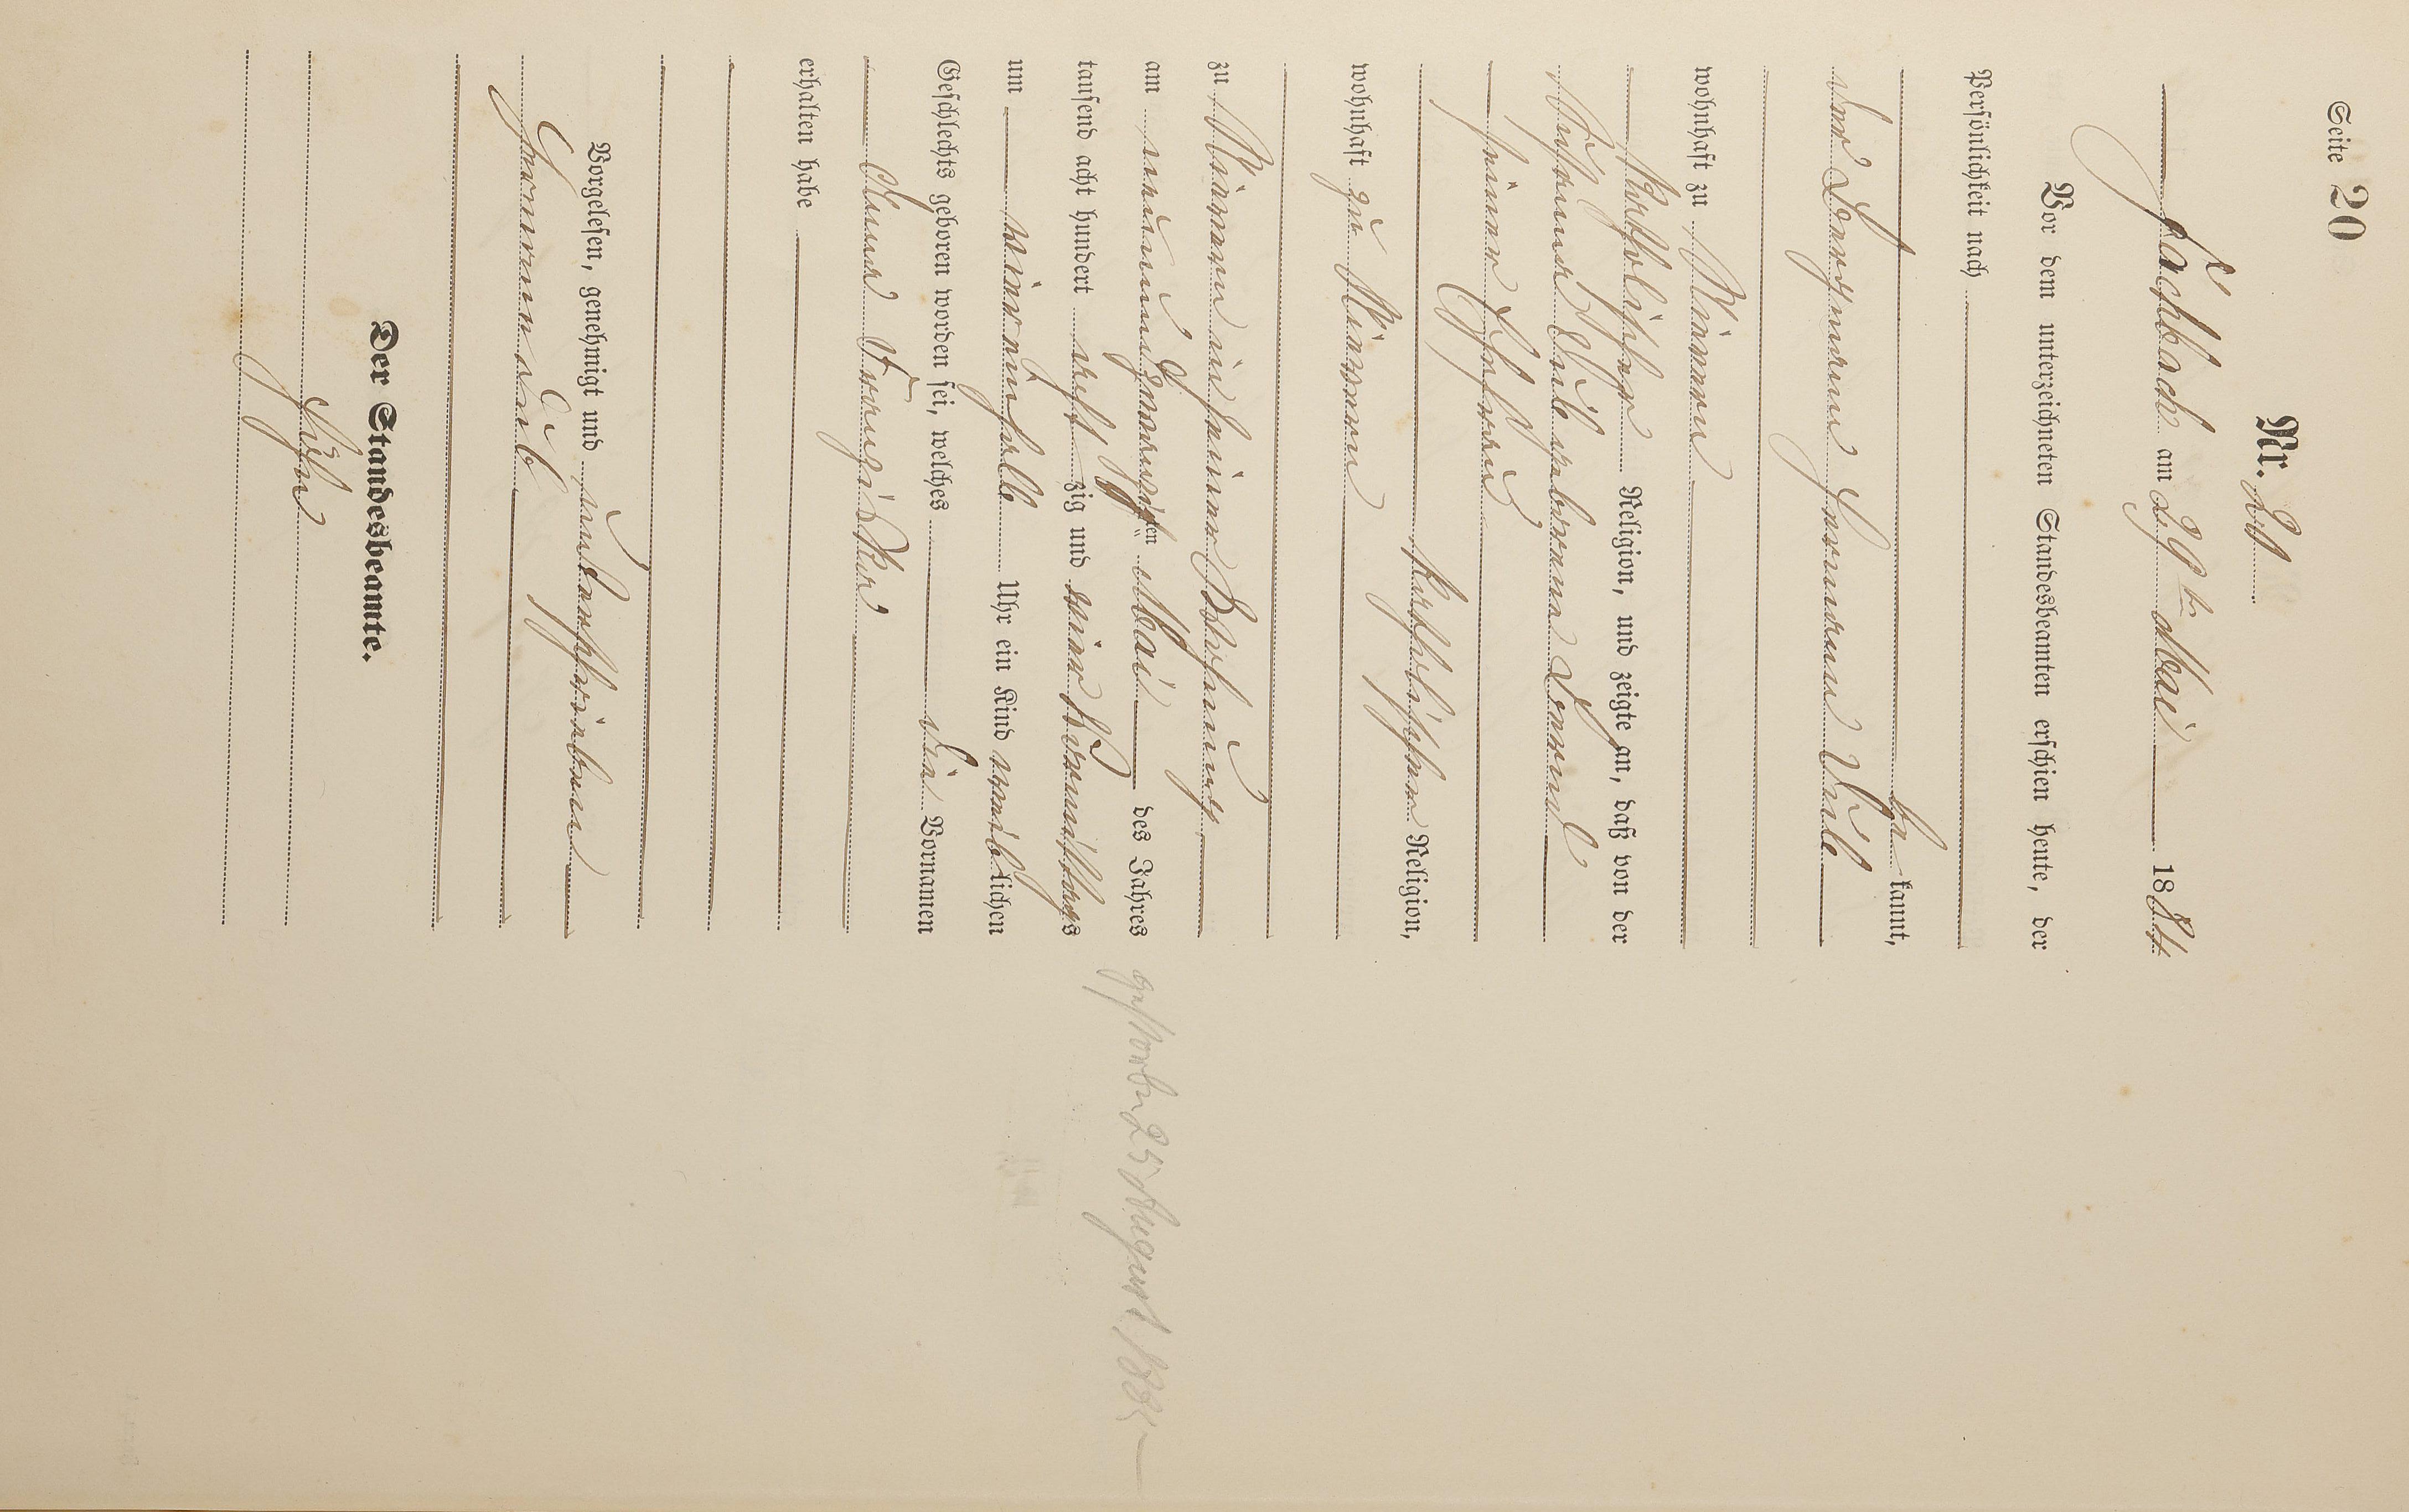 Seite 20
Nr. 20
Fachbach am 29ten Mai 1884
Vor dem unterzeichneten Standesbeamten erschien heute, der
Persönlichkeit nach
be kannt,
der Bergmann Hermann
wohnhaft zu Nievern
katholischer Religion, und zeigte an, daß von der
geborene
seiner Ehefrau
katholischer Religion,
wohnhaft zu Nievern
zu Nievern in seiner Wohnung
am neunundzwanzigsten Mai des Jahres
tausend acht hundert acht zig und vier Vormittags
um vier einhalb Uhr ein Kind weiblichen
Geschlechts geboren worden sei, welches die Vornamen
Anna Franziska
erhalten habe
Vorgelesen, genehmigt und unterschrieben
Hermann
Der Standesbeamte.
gestorben 25 August 1885